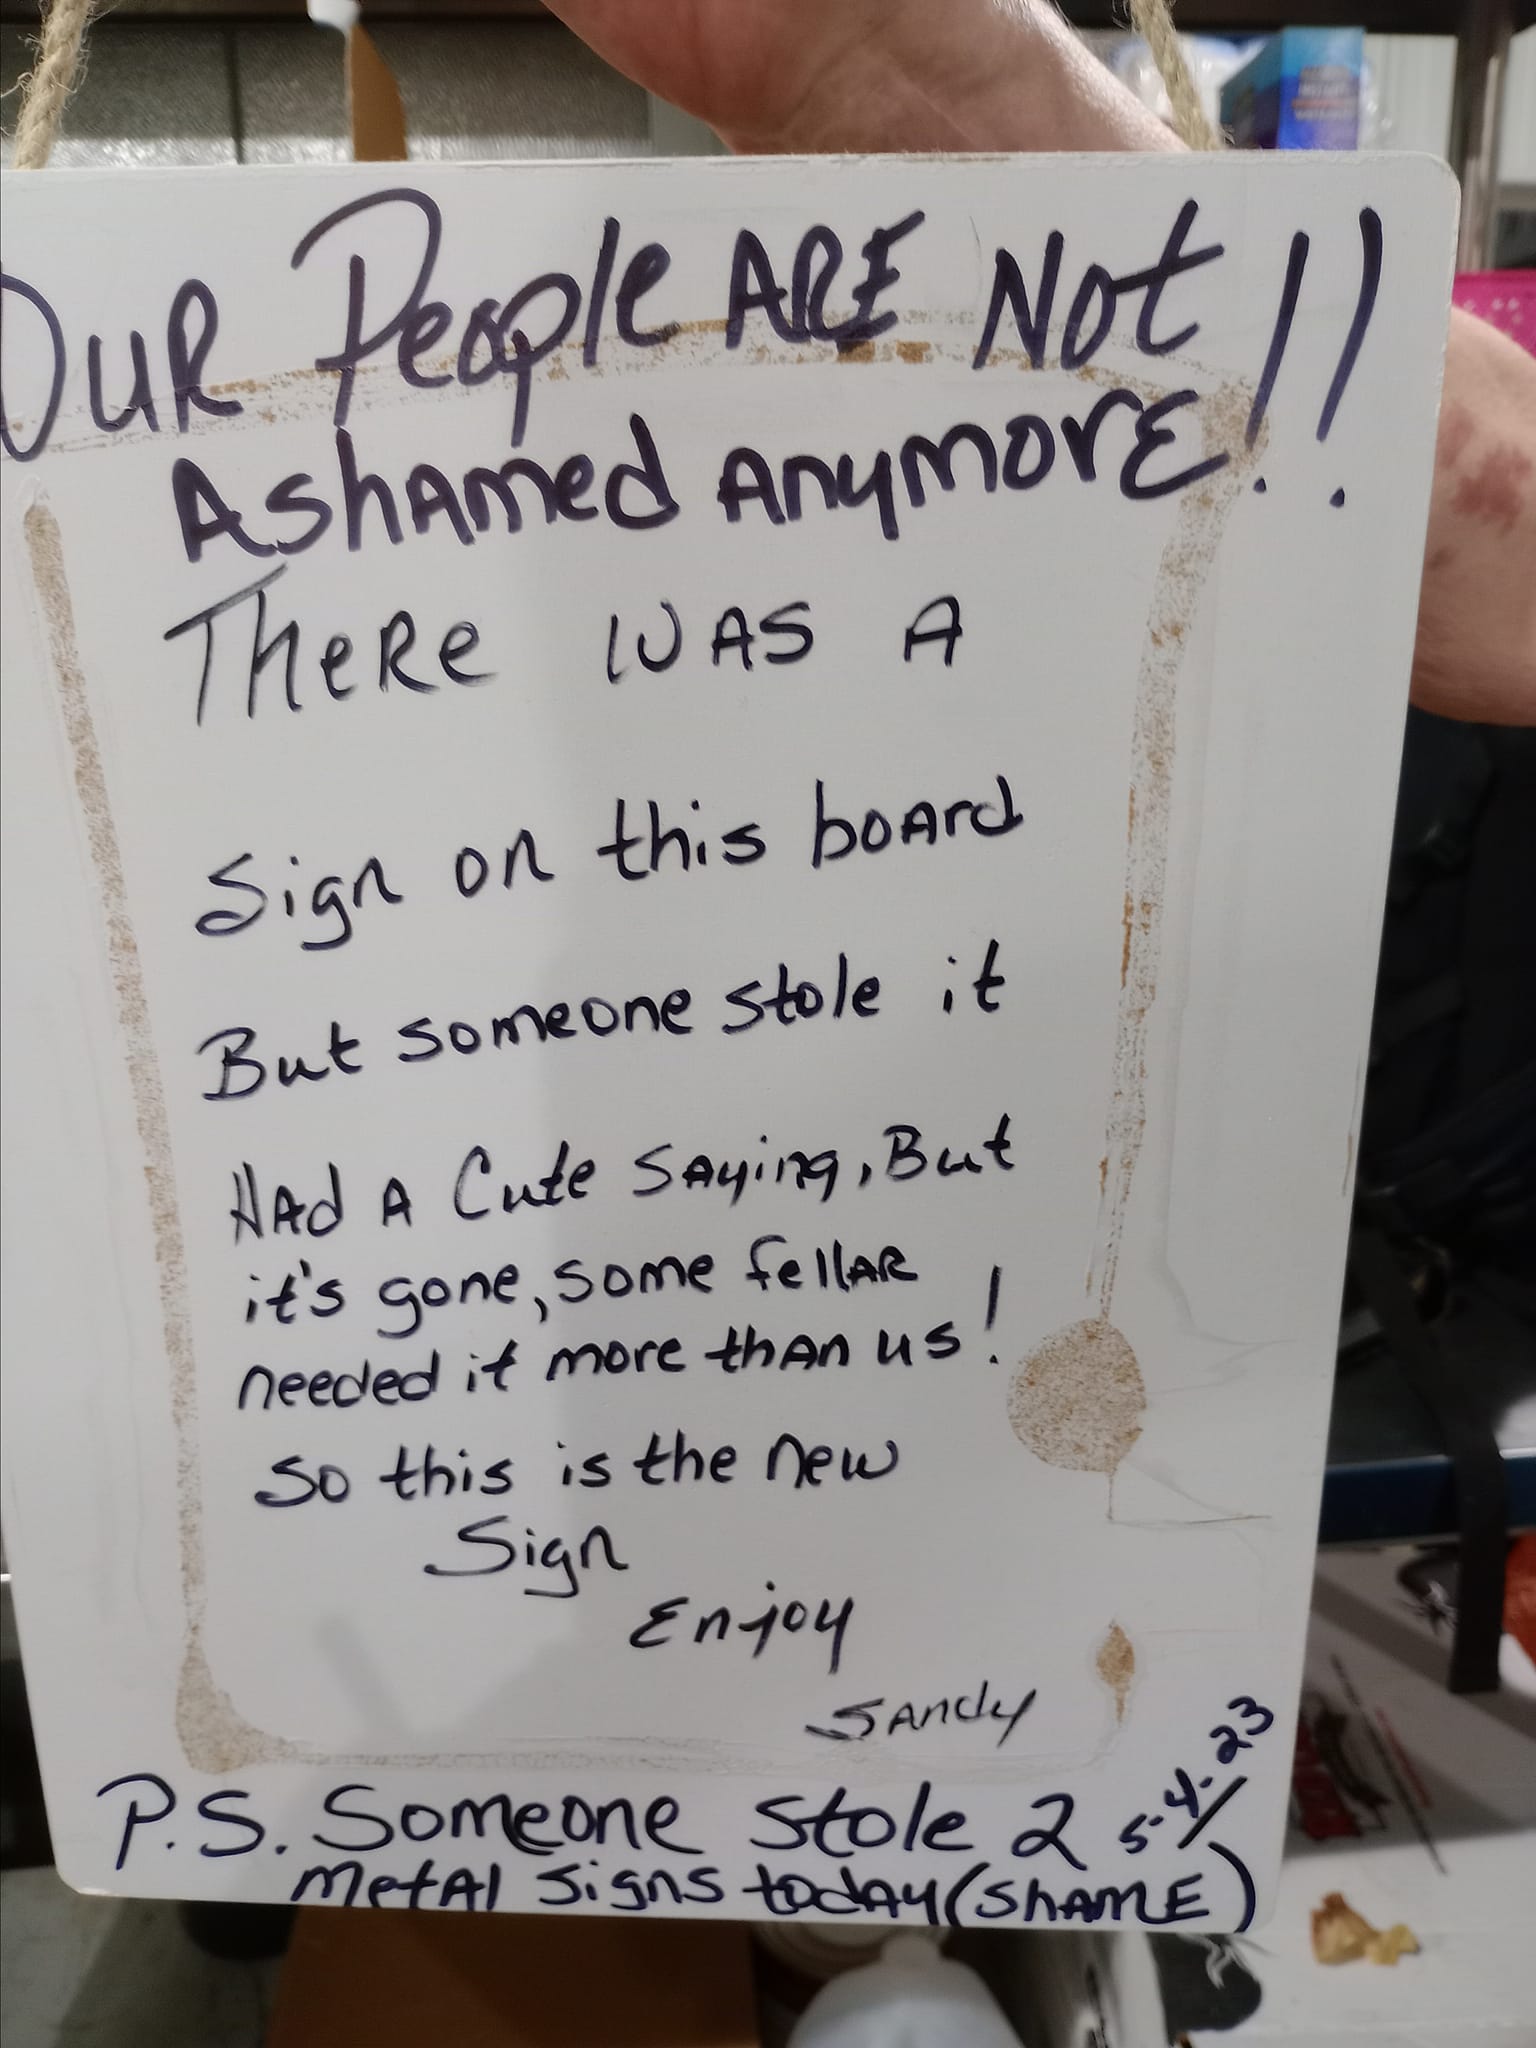 OUR People ARE Not !!
AshAmed Anymore
THeRe WAS A
Sign on this boArd
But someone stole it
HAd A Cute SAying, But
it's gone, some fellAR
needed it more thAn us!
So this is the new
Sign
Enjoy
SAndy
P.S. Someone Stole 2 5-4-23
MetAl Signs todAy (SHAME)